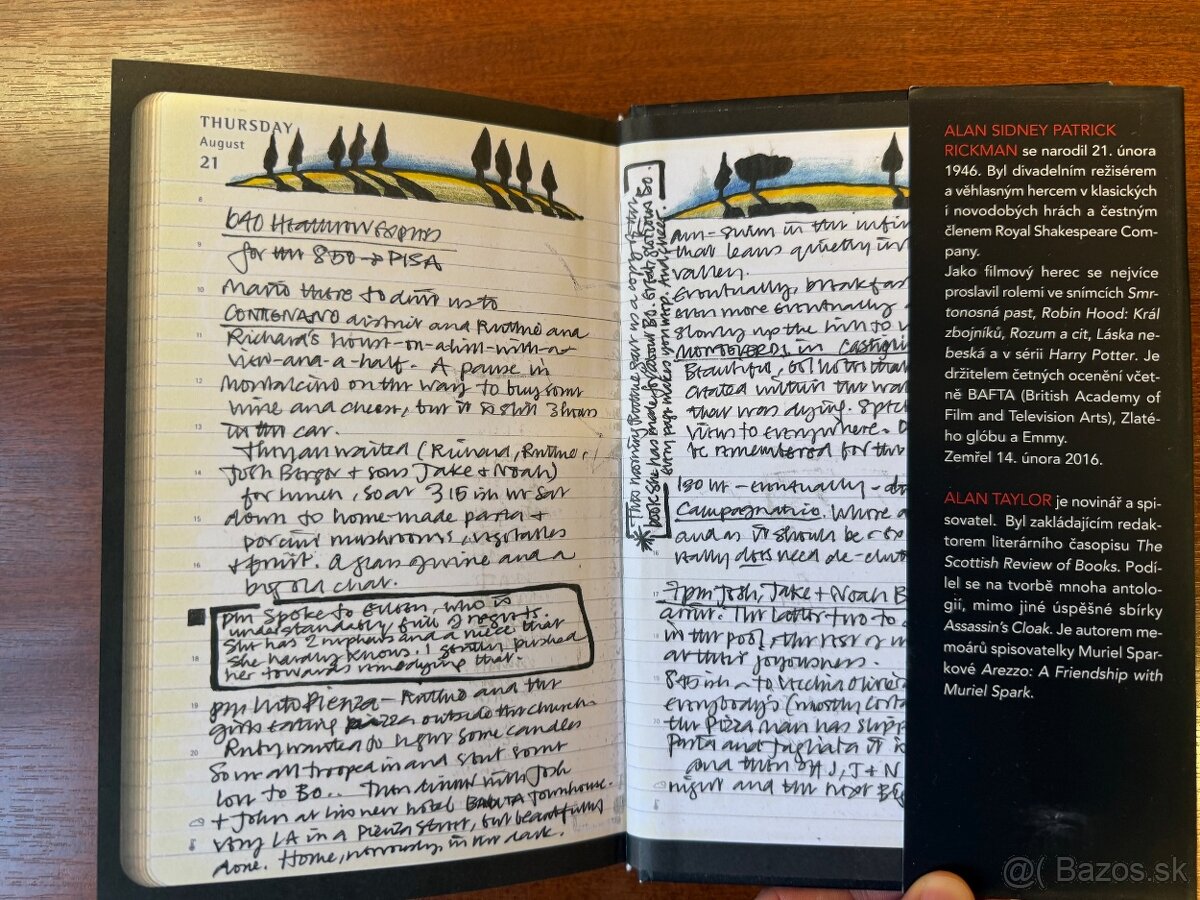 THURSDAY
August
21
8
640 Heathrow Express
for the 850 → PISA
9
10
Mario there to drive us to
CONTIGNANO district and Ruthie and
11
Richard's house-on-a-hill-with-a-
view-and-a-half. A pause in
12
Montalcino on the way to buy some
wine and cheese, but it is still 3 hours
13
in the car.
They all waited (Richard, Ruthie,
14
Josh Berger + sons Jake + Noah)
for lunch, so at 315 ish we sat
15
down to home-made pasta +
porcini mushrooms, vegetables
16
+ fruit. A glass of wine and a
big old chat.
pm Spoke to Eileen, who is
understandably full of regrets.
She has 2 nephews and a niece that
18
she hardly knows. I gently pushed
her towards remedying that.
19
pm Into Pienza – Ruthie and the
girls eating pizza outside the church.
20
Ruby wanted to light some candles
So we all trooped in and sent some
love to Bo.. Then dinner with Josh
+ John at his new hotel Townhouse.
Very LA in a Pienza street, but beautifully
done. Home, nervously, in the dark.
This morning Ruthie gave us a copy of the
book she has made for/about Bo. Great, glorious Bo.
Every page makes you weep. And cheer.
am – swim in the infin
that leans quietly in
valley.
Eventually, breakfas
even more eventually
slowly up the hill to v
MONTEVERDI in Castigli
Beautiful,
created within the wa
that was dying.
views to everywhere.
be remembered for the
130 ish – eventually – d
Campagnatico. Where
and as it should be
really does need de-clut
17
7pm Josh, Jake + Noah B
arrive. The latter two to
18
in the pool, the rest of
at their joyousness.
845 ish to Vecchia Olivier
everybody's (mostly
20
the Pizza man has
Pasta and Tagliata it is
and then off J, J + N
night and the next
ALAN SIDNEY PATRICK
RICKMAN se narodil 21. února
1946. Byl divadelním režisérem
a věhlasným hercem v klasických
i novodobých hrách a čestným
členem Royal Shakespeare Com-
pany.
Jako filmový herec se nejvíce
proslavil rolemi ve snímcích Smr-
tonosná past, Robin Hood: Král
zbojníků, Rozum a cit, Láska ne-
beská a v sérii Harry Potter. Je
držitelem četných ocenění včet-
ně BAFTA (British Academy of
Film and Television Arts), Zlaté-
ho glóbu a Emmy.
Zemřel 14. února 2016.
ALAN TAYLOR je novinář a spi-
sovatel. Byl zakládajícím redak-
torem literárního časopisu The
Scottish Review of Books. Podí-
lel se na tvorbě mnoha antolo-
gií, mimo jiné úspěšné sbírky
Assassin's Cloak. Je autorem me-
moárů spisovatelky Muriel Spar-
kové Arezzo: A Friendship with
Muriel Spark.
@( Bazos.sk